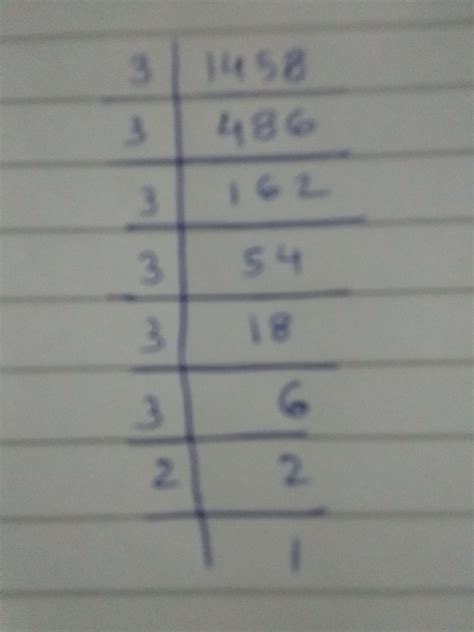 3 1458
3 486
3 162
3 54
3 18
3 6
2 2
1